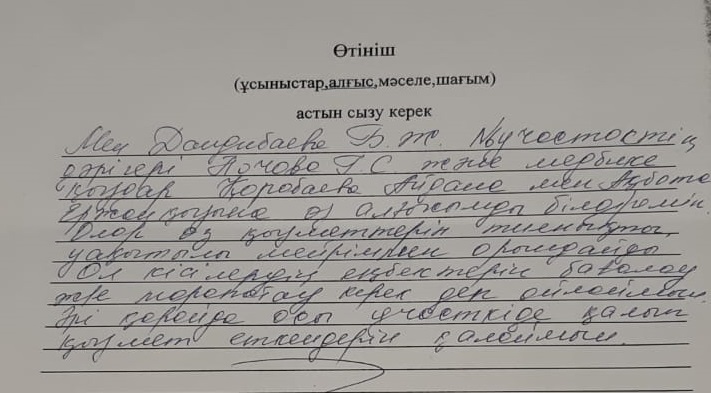 Өтініш
(ұсыныстар,алғыс,мәселе,шағым)
астын сызу керек
Мен Дандибаева Б.Ж. участостің
дәрігері Г.С. және медбике
қыздар Қоробаева Айдана мен Ақбота
Ержанқызына өз алғысымды білдіремін.
Олар өз қызметтерін тиянақты,
уақытылы мейіріммен орындайды
Ол кісілердің еңбектерін бағалау
және марапаттау керек деп ойлаймын.
Әрі қарайда осы участкіде қалып
қызмет еткендерін қалаймын.